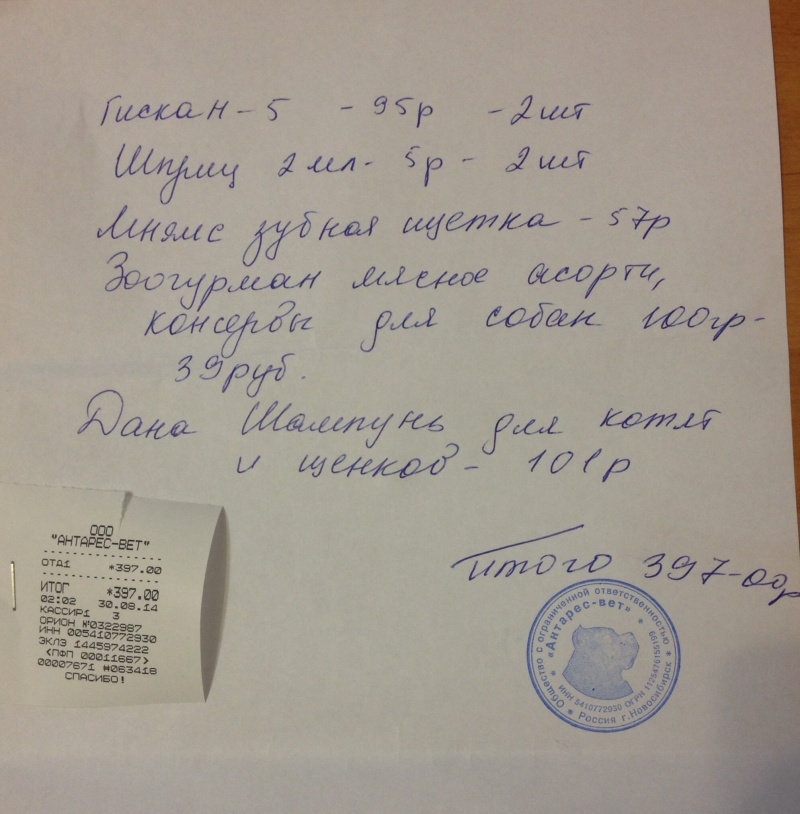 Гискан-5 - 95р - 2шт
Шприц 2мл- 5р - 2шт
Мнямс зубная щетка - 57р
Зоогурман мясное асорти,
консервы для собак 100гр-
39руб.
Дана Шампунь для котят
и щенков - 101р
Итого 397-00р
ООО
"АНТАРЕС-ВЕТ"
ОТД1 *397.00
ИТОГ *397.00
02:02 30.08.14
КАССИР1 3
ОРИОН №0322987
ИНН 005410772930
ЭКЛЗ 1445974222
<ПФП 00011667>
00007671 #063418
СПАСИБО!
Общество с ограниченной ответственностью
«Антарес-вет»
ИНН 5410772930 ОГРН
Россия г.Новосибирск